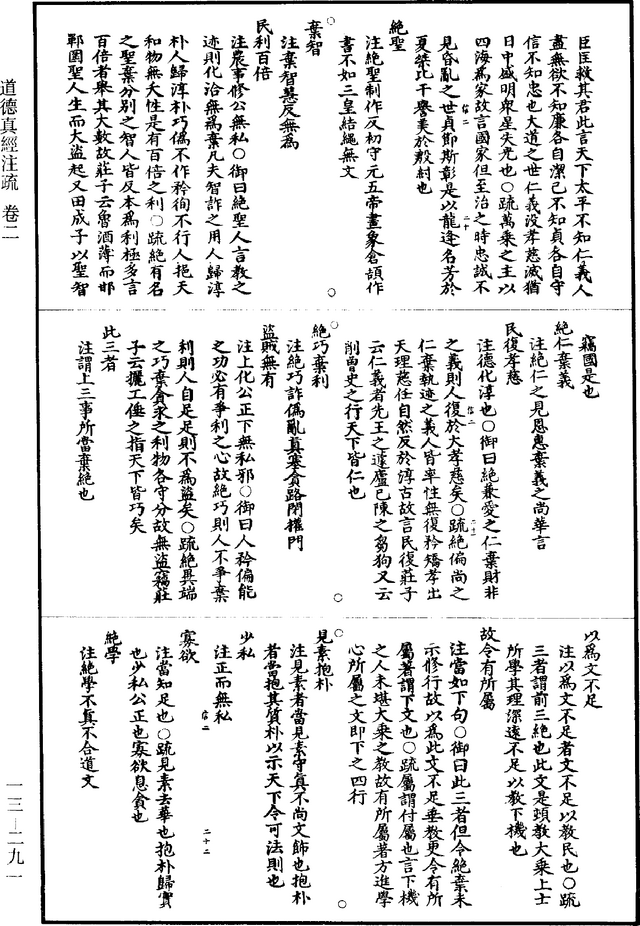 道德真經注疏 卷二
一三—二九一
臣匡救其君此言天下太平不知仁義人
盡無欲不知廉各自潔己不知貞各自守
信不知忠也大道之世仁義没孝慈滅猶
日中盛明衆星失光也○疏萬乘之主以
四海爲家故言國家但至治之時忠誠不
見昏亂之世貞節斯彰是以龍逢名芳於
夏桀比干譽美於殷紂也
絶聖
注絶聖制作反初守元五帝畫象倉頡作
書不如三皇結繩無文
棄智
注棄智慧反無爲
民利百倍
注農事修公無私○御曰絶聖人言教之
迹則化洽無爲棄凡夫智詐之用人歸淳
朴人歸淳朴巧僞不作矜徇不行人挹天
和物無夭性是有百倍之利○疏絶有名
之聖棄分别之智人皆反本爲利極多言
百倍者舉其大數故莊子云魯酒薄而邯
鄲圍聖人生而大盜起又田成子以聖智
竊國是也
絶仁棄義
注絶仁之見恩惠棄義之尚華言
民復孝慈
注德化淳也○御曰絶兼愛之仁棄財非
之義則人復於大孝慈矣○疏絶偏尚之
仁棄執迹之義人皆率性無復矜矯孝出
天理慈任自然反於淳古故言民復莊子
云仁義者先王之蘧廬已陳之芻狗又云
削曾史之行天下皆仁也
絶巧棄利
注絶巧詐僞亂真塞貪路閉權門
盜賊無有
注上化公正下無私邪○御曰人矜偏能
之功必有爭利之心故絶巧則人不爭棄
利則人自足足則不爲盜矣○疏絶異端
之巧棄貪求之利物各守分故無盜竊莊
子云攦工倕之指天下皆巧矣
此三者
注謂上三事所當棄絶也
以爲文不足
注以爲文不足者文不足以教民也○疏
三者謂前三絶也此文是頭教大乘上士
所學其理深遠不足以教下機也
故令有所屬
注當如下句○御曰此三者但令絶棄未
示修行故以爲此文不足垂教更令有所
屬著謂下文也○疏屬謂付屬也言下機
之人未堪大乘之教故有所屬著方進學
心所屬之文即下之四行
見素抱朴
注見素者當見素守真不尚文飾也抱朴
者當抱其質朴以示天下令可法則也
少私
注正而無私
寡欲
注當知足也○疏見素去華也抱朴歸實
也少私公正也寡欲息貪也
絶學
注絶學不真不合道文